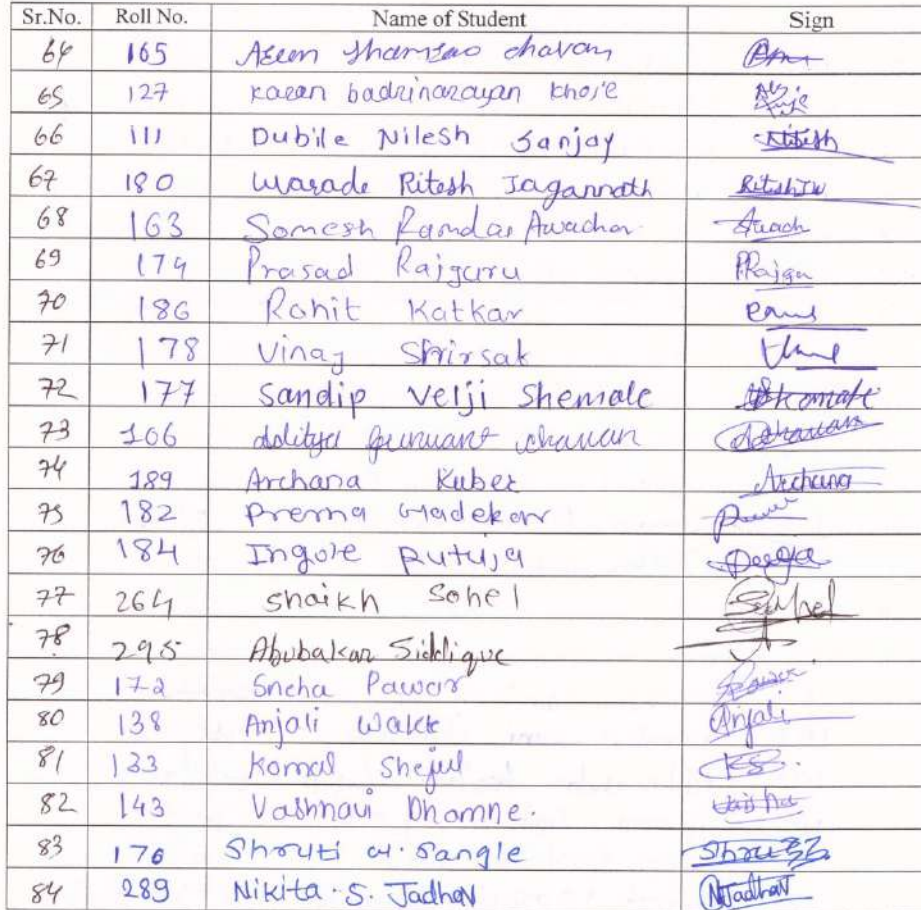 Sr.No. Roll No. Name of Student Sign
64 165 Shamrao chavan
65 127 karan badrinarayan khoje
66 111 Dubile Nilesh Sanjay Nilesh
67 180 Warade Ritesh Jagannath RiteshJW
68 163 Somesh Ramdas Awachar Awach
69 174 Prasad Rajguru PRajgu
70 186 Rohit Katkar
71 178 Vinay Shirsat
72 177 Sandip Velji Shemale
73 106 Aditya gunwant chavan AChavan
74 189 Archana Kuber Archana
75 182 Prerna Gadekar
76 184 Ingole Rutuja
77 264 Shaikh Sohel Sohel
78 295 Abubakar Siddique
79 172 Sneha Pawar Pawar
80 138 Anjali Wakle Anjali
81 133 Komal Shejul KS.
82 143 Vashnavi Dhamne.
83 176 Shruti G. Sangle Shruti
84 289 Nikita . S. Jadhav NJadhav